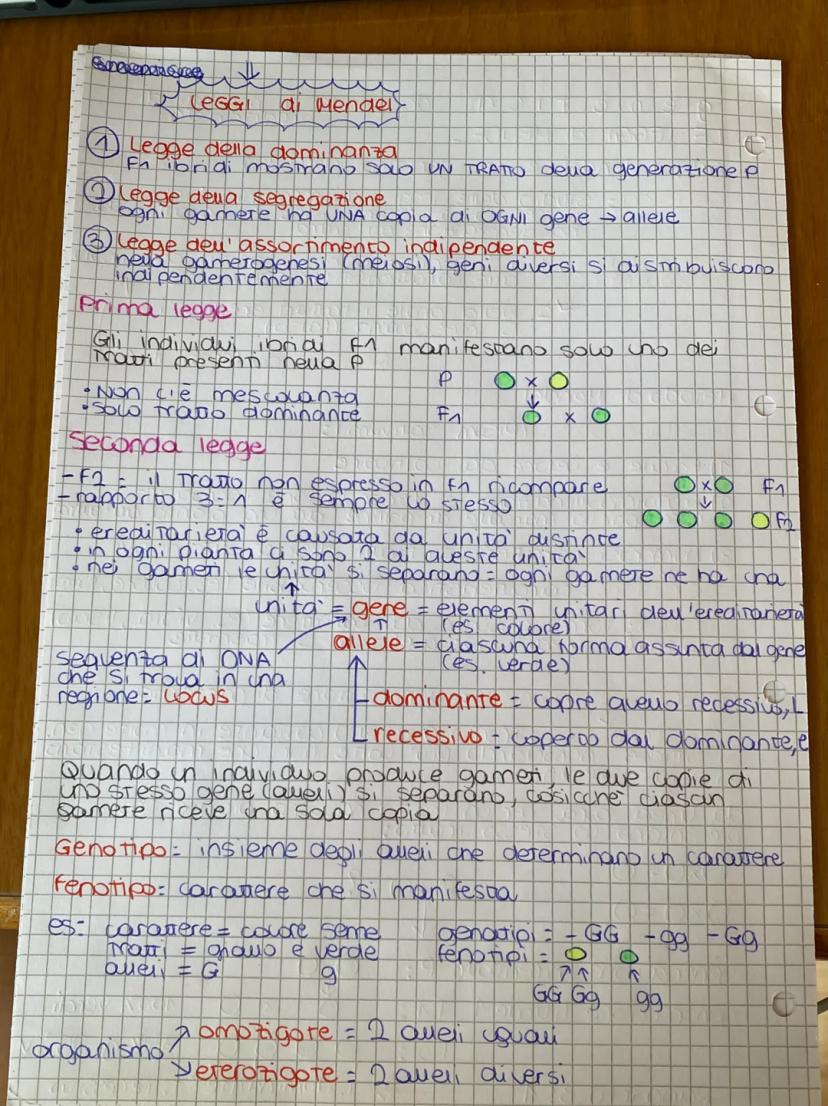 LEGGI di Mendel
1 Legge della dominanza
F1 ibridi mostrano solo UN TRATTO della generazione P
2 Legge della segregazione
ogni gamete ha UNA copia di OGNI gene → allele
3 Legge dell'assortimento indipendente
nella gametogenesi (meiosi), geni diversi si distribuiscono
indipendentemente
Prima legge
Gli individui ibridi F1 manifestano solo uno dei
tratti presenti nella P
P x
• Non c'è mescolanza
• Solo tratto dominante F1 x
Seconda legge
- F2 = il tratto non espresso in F1 ricompare x F1
- rapporto 3:1 è sempre lo stesso
F2
• ereditarietà è causata da unità distinte
• in ogni pianta ci sono 2 di queste unità
• nei gameti le unità si separano = ogni gamete ne ha una
unità = gene = elementi unitari dell'ereditarietà
(es. colore)
allele = ciascuna forma assunta dal gene
(es. verde)
sequenza di DNA
che si trova in una
regione = Locus
dominante = copre quello recessivo, L
recessivo = coperto dal dominante, e
Quando un individuo produce gameti, le due copie di
uno stesso gene (alleli) si separano, cosicché ciascun
gamete riceve una sola copia
Genotipo = insieme degli alleli che determinano un carattere
Fenotipo = carattere che si manifesta
es: carattere = colore seme genotipi = - GG - gg - Gg
tratti = giallo e verde fenotipi =
alleli = G g
GG Gg gg
organismo omozigote = 2 alleli uguali
eterozigote = 2 alleli diversi